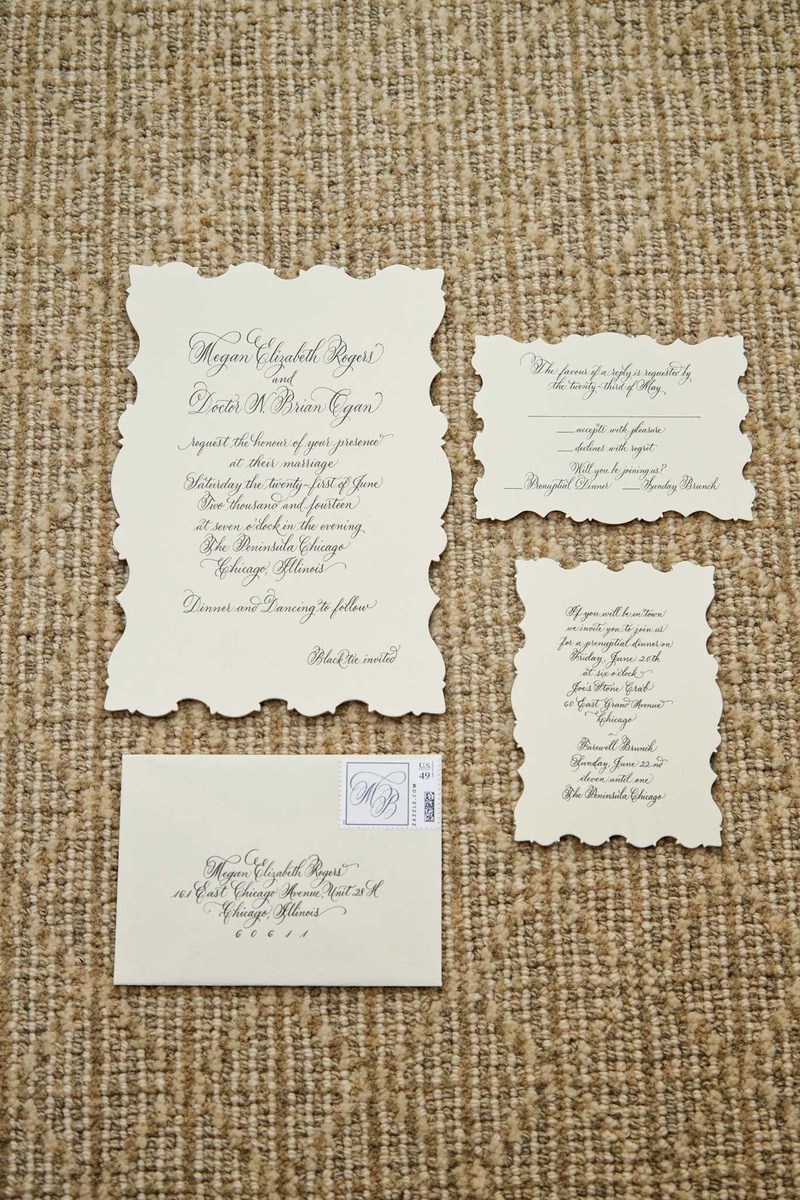 Megan Elizabeth Rogers
and
Doctor N. Brian Egan
request the honour of your presence
at their marriage
Saturday the twenty-first of June
Two thousand and fourteen
at seven o'clock in the evening
The Peninsula Chicago
Chicago, Illinois
Dinner and Dancing to follow
Black tie invited
The favour of a reply is requested by
the twenty-third of May
accepts with pleasure
declines with regret
Will you be joining us?
Prenuptial Dinner Sunday Brunch
If you will be in town
we invite you to join us
for a prenuptial dinner on
Friday, June 20th
at six o'clock
Joe's Stone Crab
60 East Grand Avenue
Chicago
~
Farewell Brunch
Sunday, June 22nd
eleven until one
The Peninsula Chicago
MB
U.S.
49
ZAZZLE.COM
Megan Elizabeth Rogers
161 East Chicago Avenue, Unit 28H
Chicago, Illinois
60611